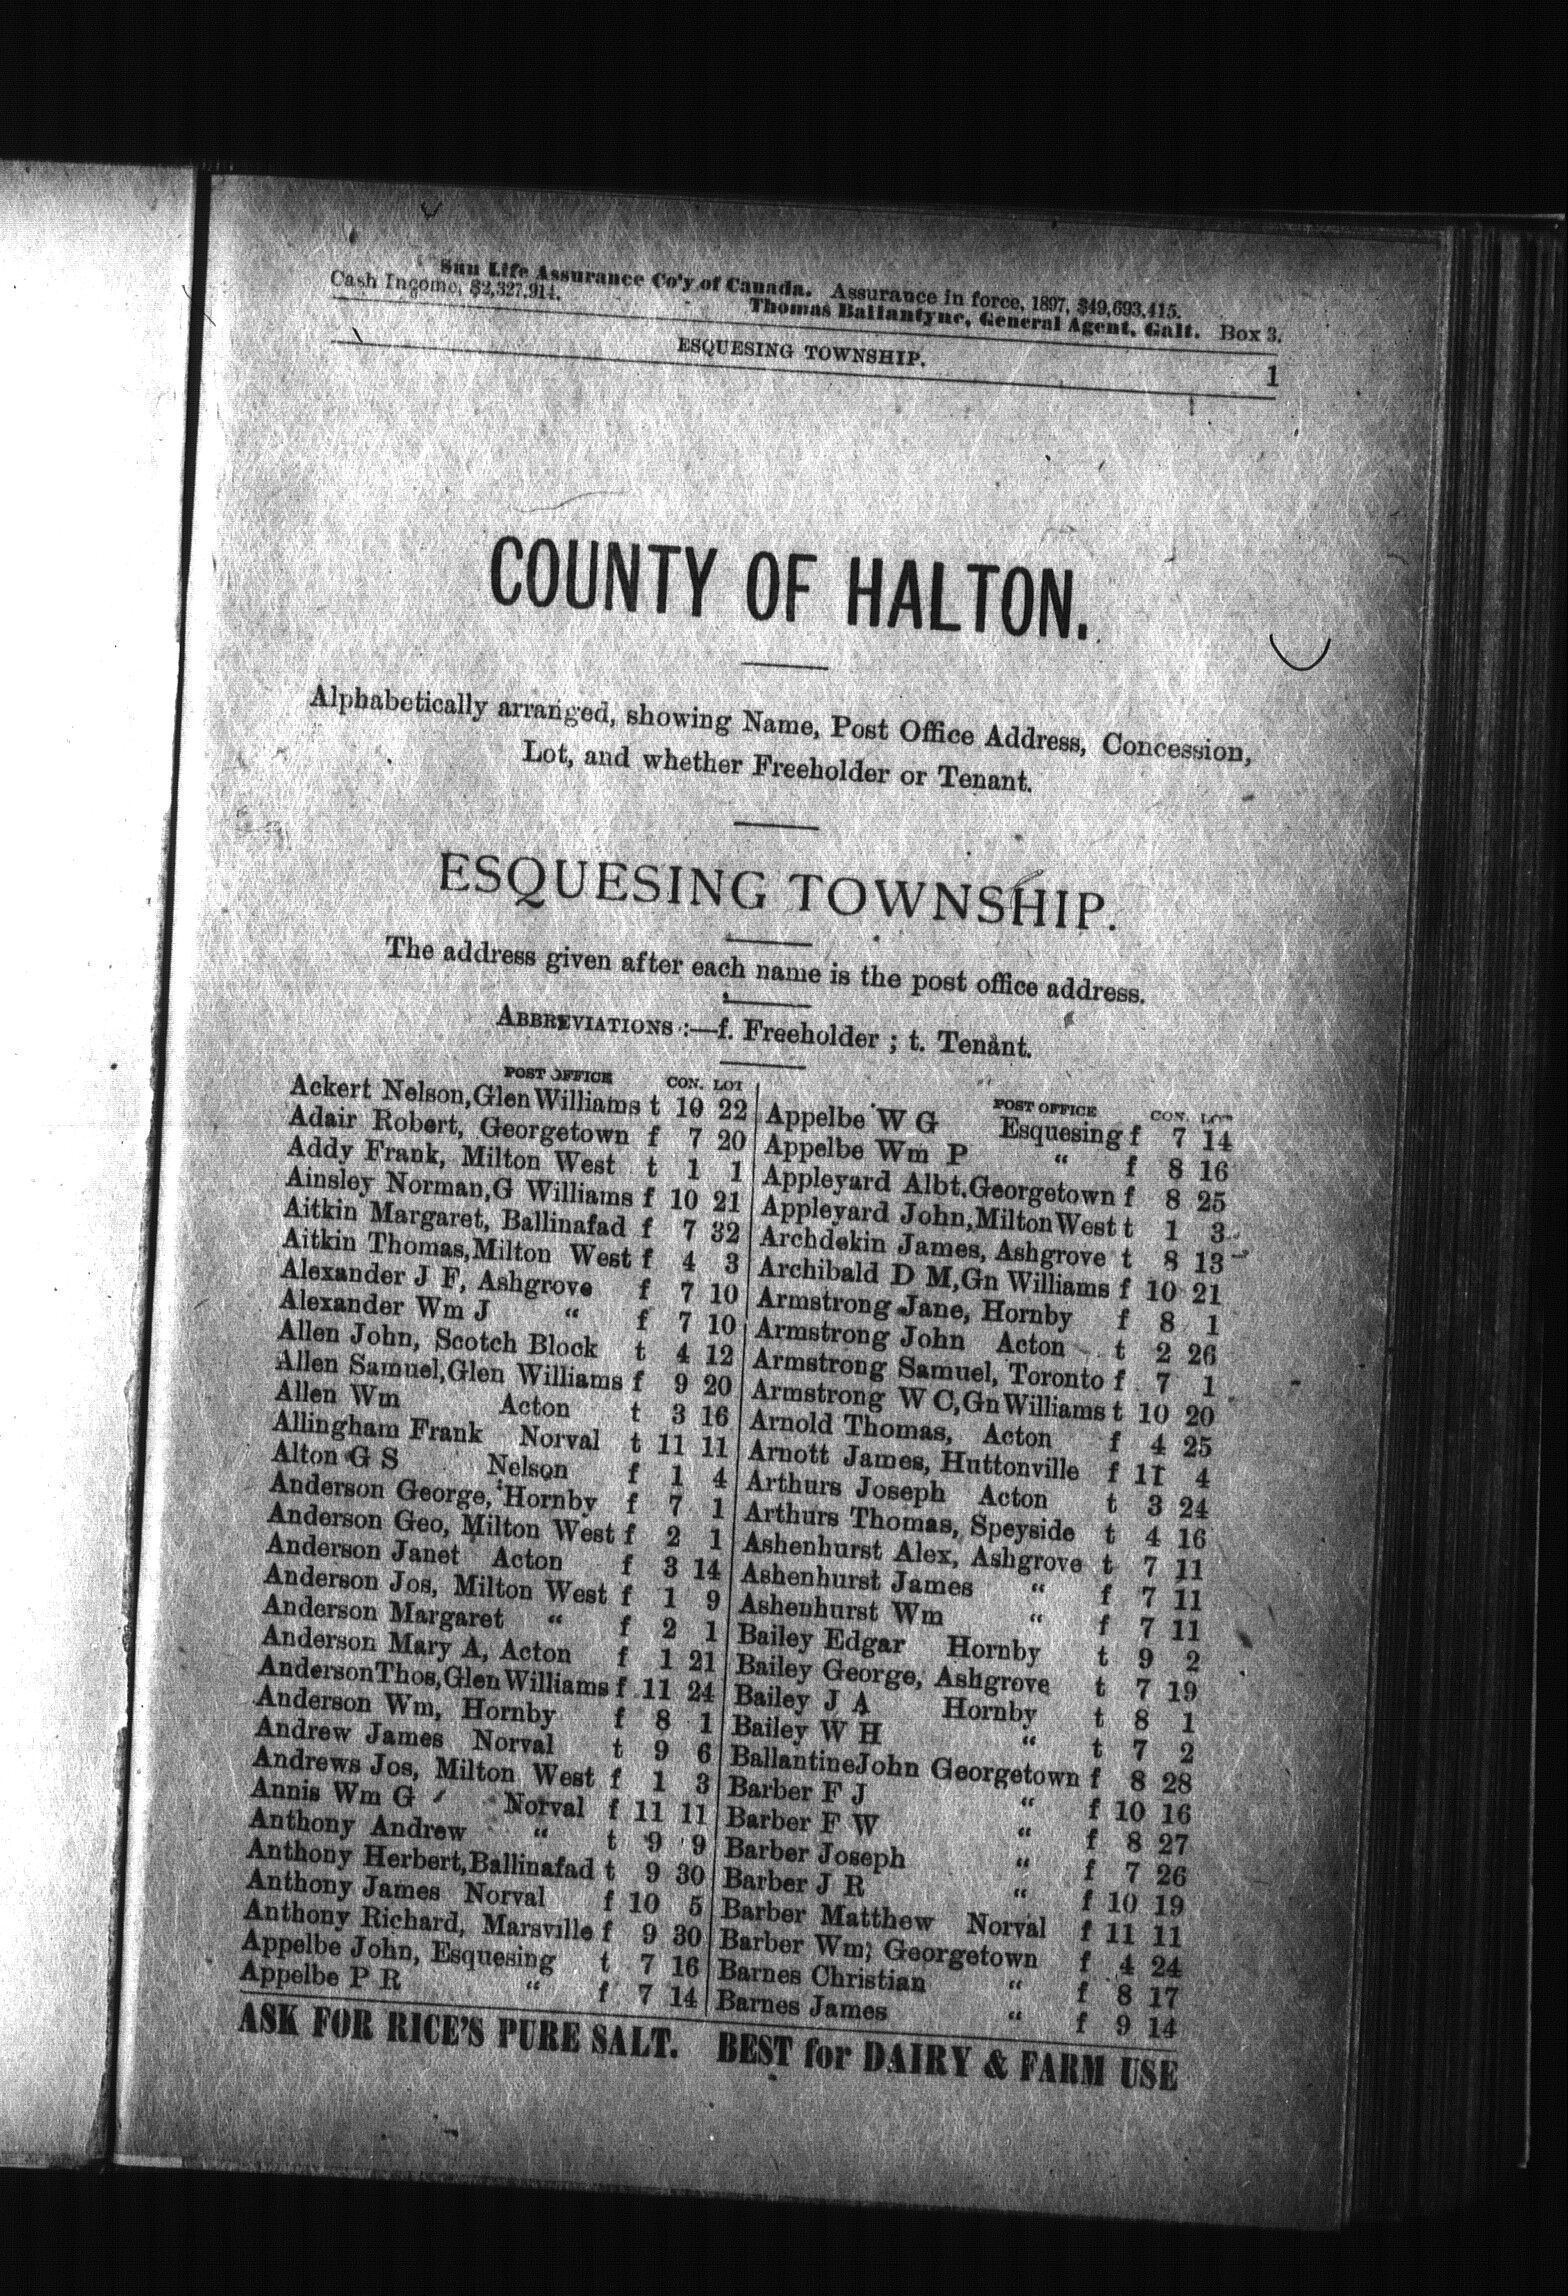 Sun Life Assurance Co'y of Canada. Assurance in force, 1897, $49,693,415.
Cash Income, $2,327,914. Thomas Ballantyne, General Agent, Galt. Box 3.
ESQUESING TOWNSHIP. 1
COUNTY OF HALTON.
Alphabetically arranged, showing Name, Post Office Address, Concession,
Lot, and whether Freeholder or Tenant.
ESQUESING TOWNSHIP.
The address given after each name is the post office address.
ABBREVIATIONS :—f. Freeholder ; t. Tenant.
POST OFFICE CON. LOT
Ackert Nelson, Glen Williams t 10 22
Adair Robert, Georgetown f 7 20
Addy Frank, Milton West t 1 1
Ainsley Norman, G Williams f 10 21
Aitkin Margaret, Ballinafad f 7 32
Aitkin Thomas, Milton West f 4 3
Alexander J F, Ashgrove f 7 10
Alexander Wm J “ f 7 10
Allen John, Scotch Block t 4 12
Allen Samuel, Glen Williams f 9 20
Allen Wm Acton t 3 16
Allingham Frank Norval t 11 11
Alton G S Nelson f 1 4
Anderson George, Hornby f 7 1
Anderson Geo, Milton West f 2 1
Anderson Janet Acton f 3 14
Anderson Jos, Milton West f 1 9
Anderson Margaret “ f 2 1
Anderson Mary A, Acton f 1 21
Anderson Thos, Glen Williams f 11 24
Anderson Wm, Hornby f 8 1
Andrew James Norval t 9 6
Andrews Jos, Milton West f 1 3
Annis Wm G Norval f 11 11
Anthony Andrew “ t 9 9
Anthony Herbert, Ballinafad t 9 30
Anthony James Norval f 10 5
Anthony Richard, Marsville f 9 30
Appelbe John, Esquesing t 7 16
Appelbe P R “ f 7 14
POST OFFICE CON. LOT
Appelbe W G Esquesing f 7 14
Appelbe Wm P “ f 8 16
Appleyard Albt. Georgetown f 8 25
Appleyard John, Milton West t 1 3
Archdekin James, Ashgrove t 8 13
Archibald D M, Gn Williams f 10 21
Armstrong Jane, Hornby f 8 1
Armstrong John Acton t 2 26
Armstrong Samuel, Toronto f 7 1
Armstrong W C, Gn Williams t 10 20
Arnold Thomas, Acton f 4 25
Arnott James, Huttonville f 11 4
Arthurs Joseph Acton t 3 24
Arthurs Thomas, Speyside t 4 16
Ashenhurst Alex, Ashgrove t 7 11
Ashenhurst James “ f 7 11
Ashenhurst Wm “ f 7 11
Bailey Edgar Hornby t 9 2
Bailey George, Ashgrove t 7 19
Bailey J A Hornby t 8 1
Bailey W H “ t 7 2
Ballantine John Georgetown f 8 28
Barber F J “ f 10 16
Barber F W “ f 8 27
Barber Joseph “ f 7 26
Barber J R “ f 10 19
Barber Matthew Norval f 11 11
Barber Wm, Georgetown f 4 24
Barnes Christian “ f 8 17
Barnes James “ f 9 14
ASK FOR RICE'S PURE SALT. BEST for DAIRY & FARM USE